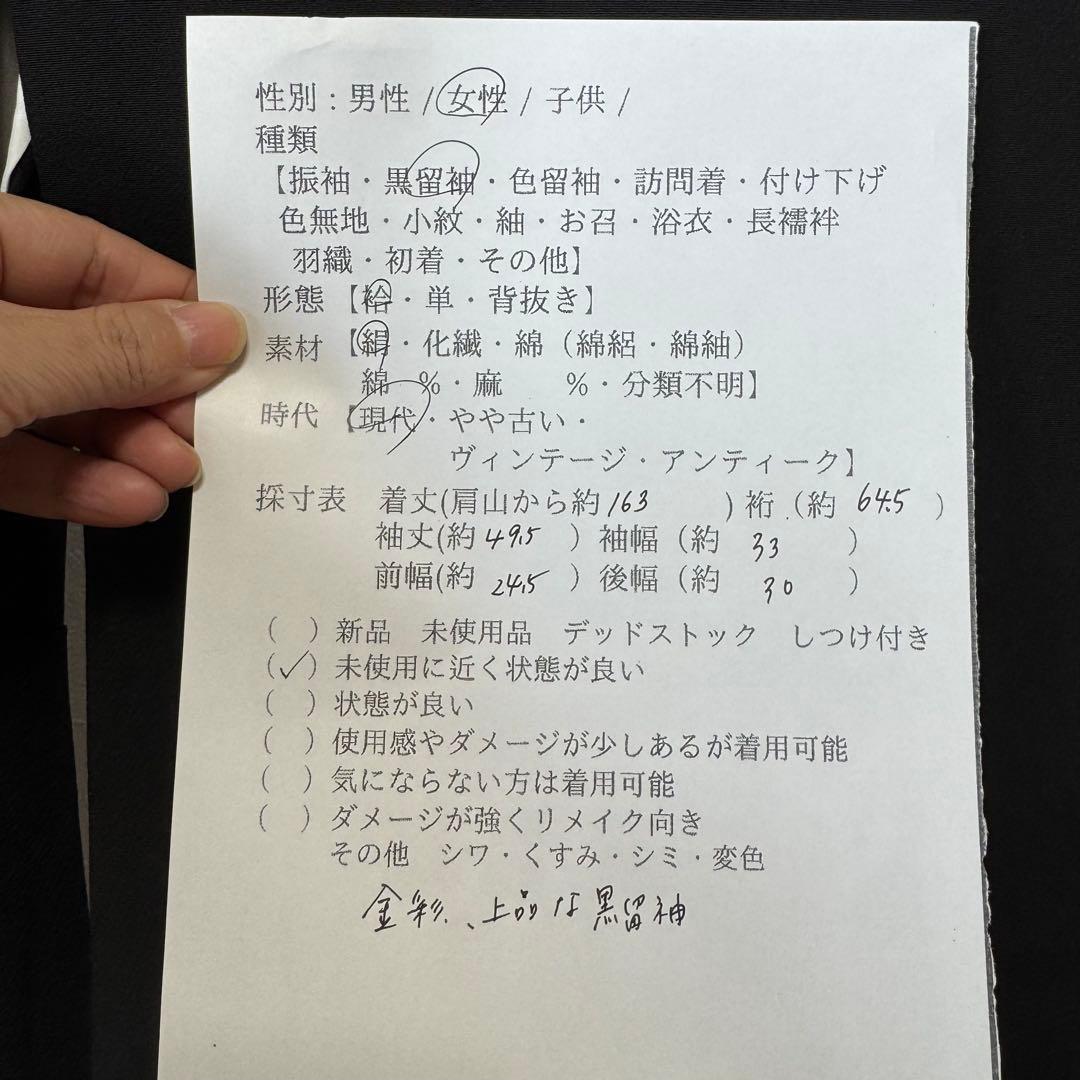 性別：男性 / 女性 / 子供 /
種類
【振袖・黒留袖・色留袖・訪問着・付け下げ
色無地・小紋・紬・お召・浴衣・長襦袢
羽織・初着・その他】
形態【袷・単・背抜き】
素材【絹・化繊・綿（綿絽・綿紬）
綿　％・麻　　％・分類不明】
時代【現代・やや古い・
ヴィンテージ・アンティーク】
採寸表　着丈(肩山から約163　　) 裄（約 64.5 ）
袖丈(約 49.5 ）袖幅（約 33 ）
前幅(約 24.5 ）後幅（約 30 ）
（　）新品　未使用品　デッドストック　しつけ付き
（✓）未使用に近く状態が良い
（　）状態が良い
（　）使用感やダメージが少しあるが着用可能
（　）気にならない方は着用可能
（　）ダメージが強くリメイク向き
その他　シワ・くすみ・シミ・変色
金彩、上品な黒留袖